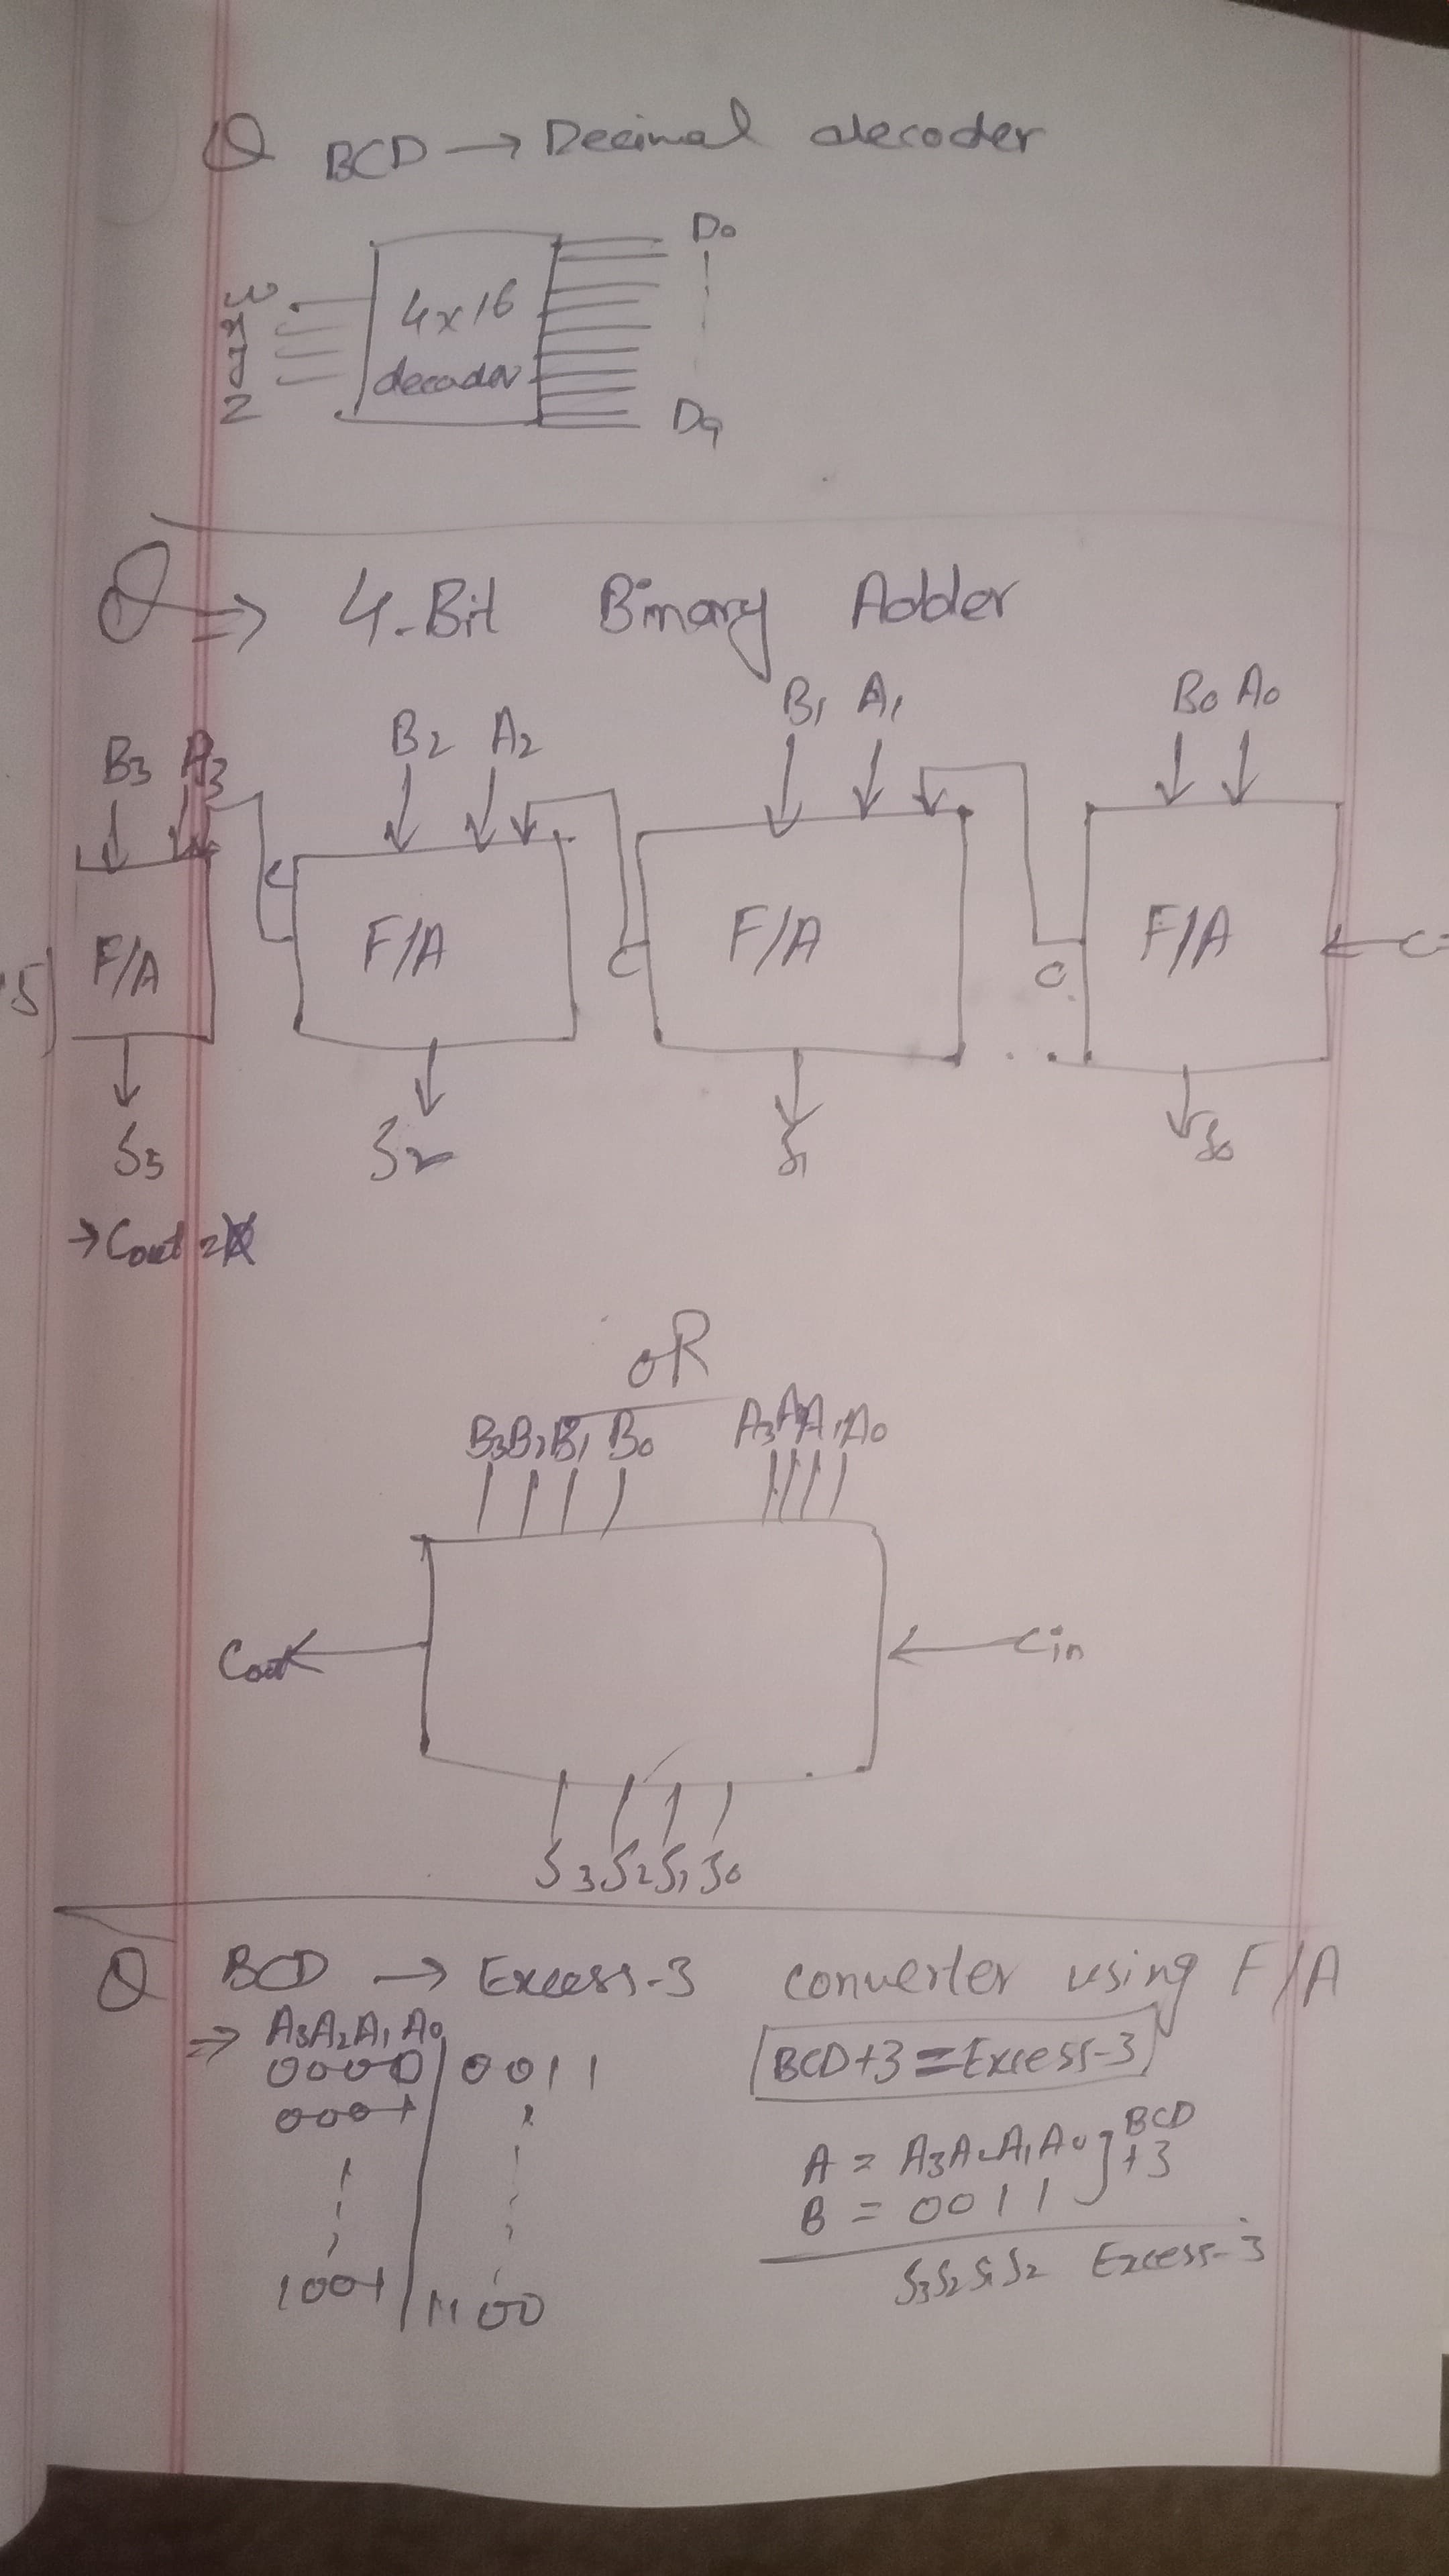 Q BCD → Decimal decoder
D0
w
x
y
z
4x16
decoder
D9
Q ⇒ 4-Bit Binary Adder
B3 A3 B2 A2 B1 A1 B0 A0
C C C C
F/A F/A F/A F/A
S3 S2 S1 S0
→ Cout =
OR
B3 B2 B1 B0 A3 A2 A1 A0
Cout Cin
S3 S2 S1 S0
Q BCD → Excess-3 converter using F/A
⇒ A3A2A1A0
0000 0011
BCD+3=Excess-3
0001
A = A3A2A1A0 BCD
B = 0011 +3
1001 1100
S3S2S1S2 Excess-3